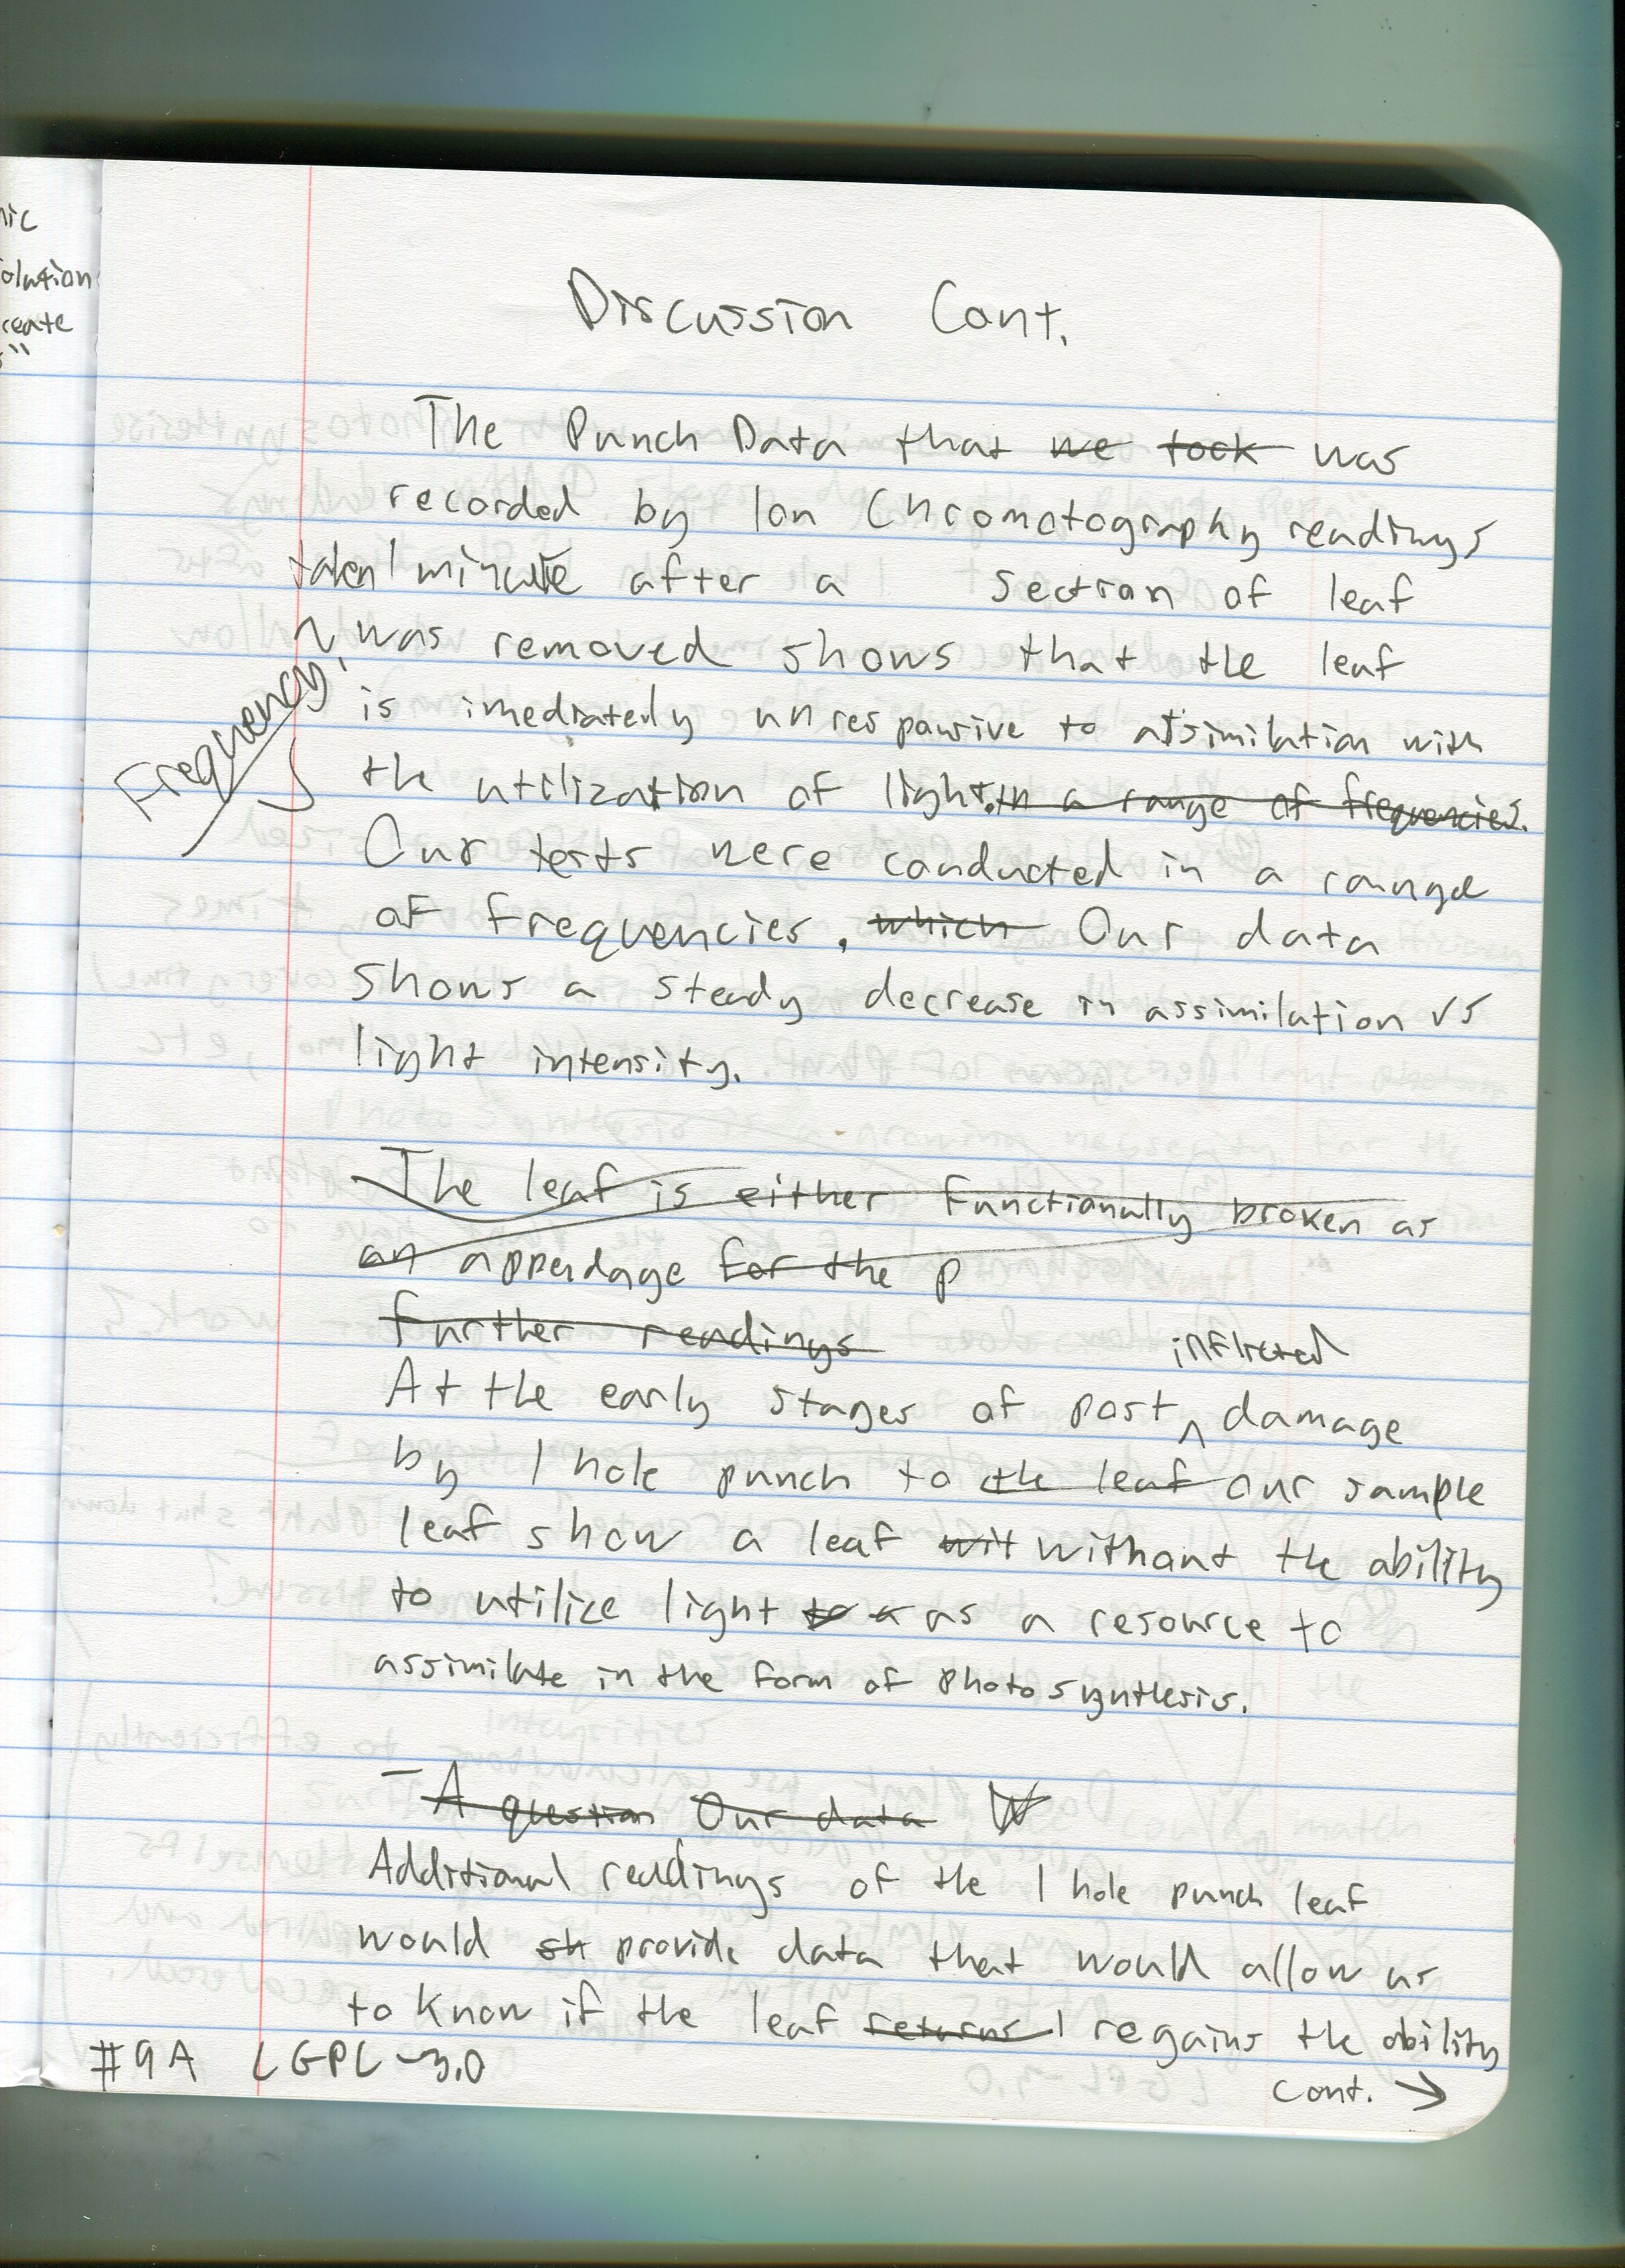 nic
olation
reate
s"
Discussion Cont.
The Punch Data that we took was
recorded by Ion Chromotography readings
taken 1 minute after a section of leaf
was removed shows that the leaf
Frequency
is imediately unresponsive to assimilation with
the utilization of light. in a range of frequencies.
Our tests were conducted in a range
of frequencies. which Our data
shows a steady decrease in assimilation vs
light intensity.
The leaf is either functionally broken as
an appendage for the p
further readings
inflicted
At the early stages of post ^ damage
by 1 hole punch to the leaf our sample
leaf show a leaf wit without the ability
to utilize light to a as a resource to
assimilate in the form of photosynthesis.
- A question Our data W
Additional readings of the 1 hole punch leaf
would sh provide data that would allow us
to know if the leaf returns regains the ability
#9A LGPL-3.0
cont. →